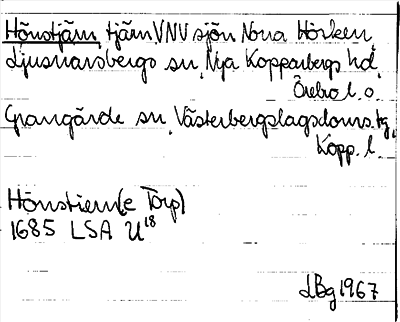 Hönstjärn, tjärn VNV sjön Norra Hörken,
Ljusnarsbergs sn, Nya Kopparbergs hd,
Örebro l. o.
Grangärde sn, Västerbergslagsdoms. tg,
Kopp. l.
Hönstiern(e Torp)
1685 LSA U18
LBg 1967